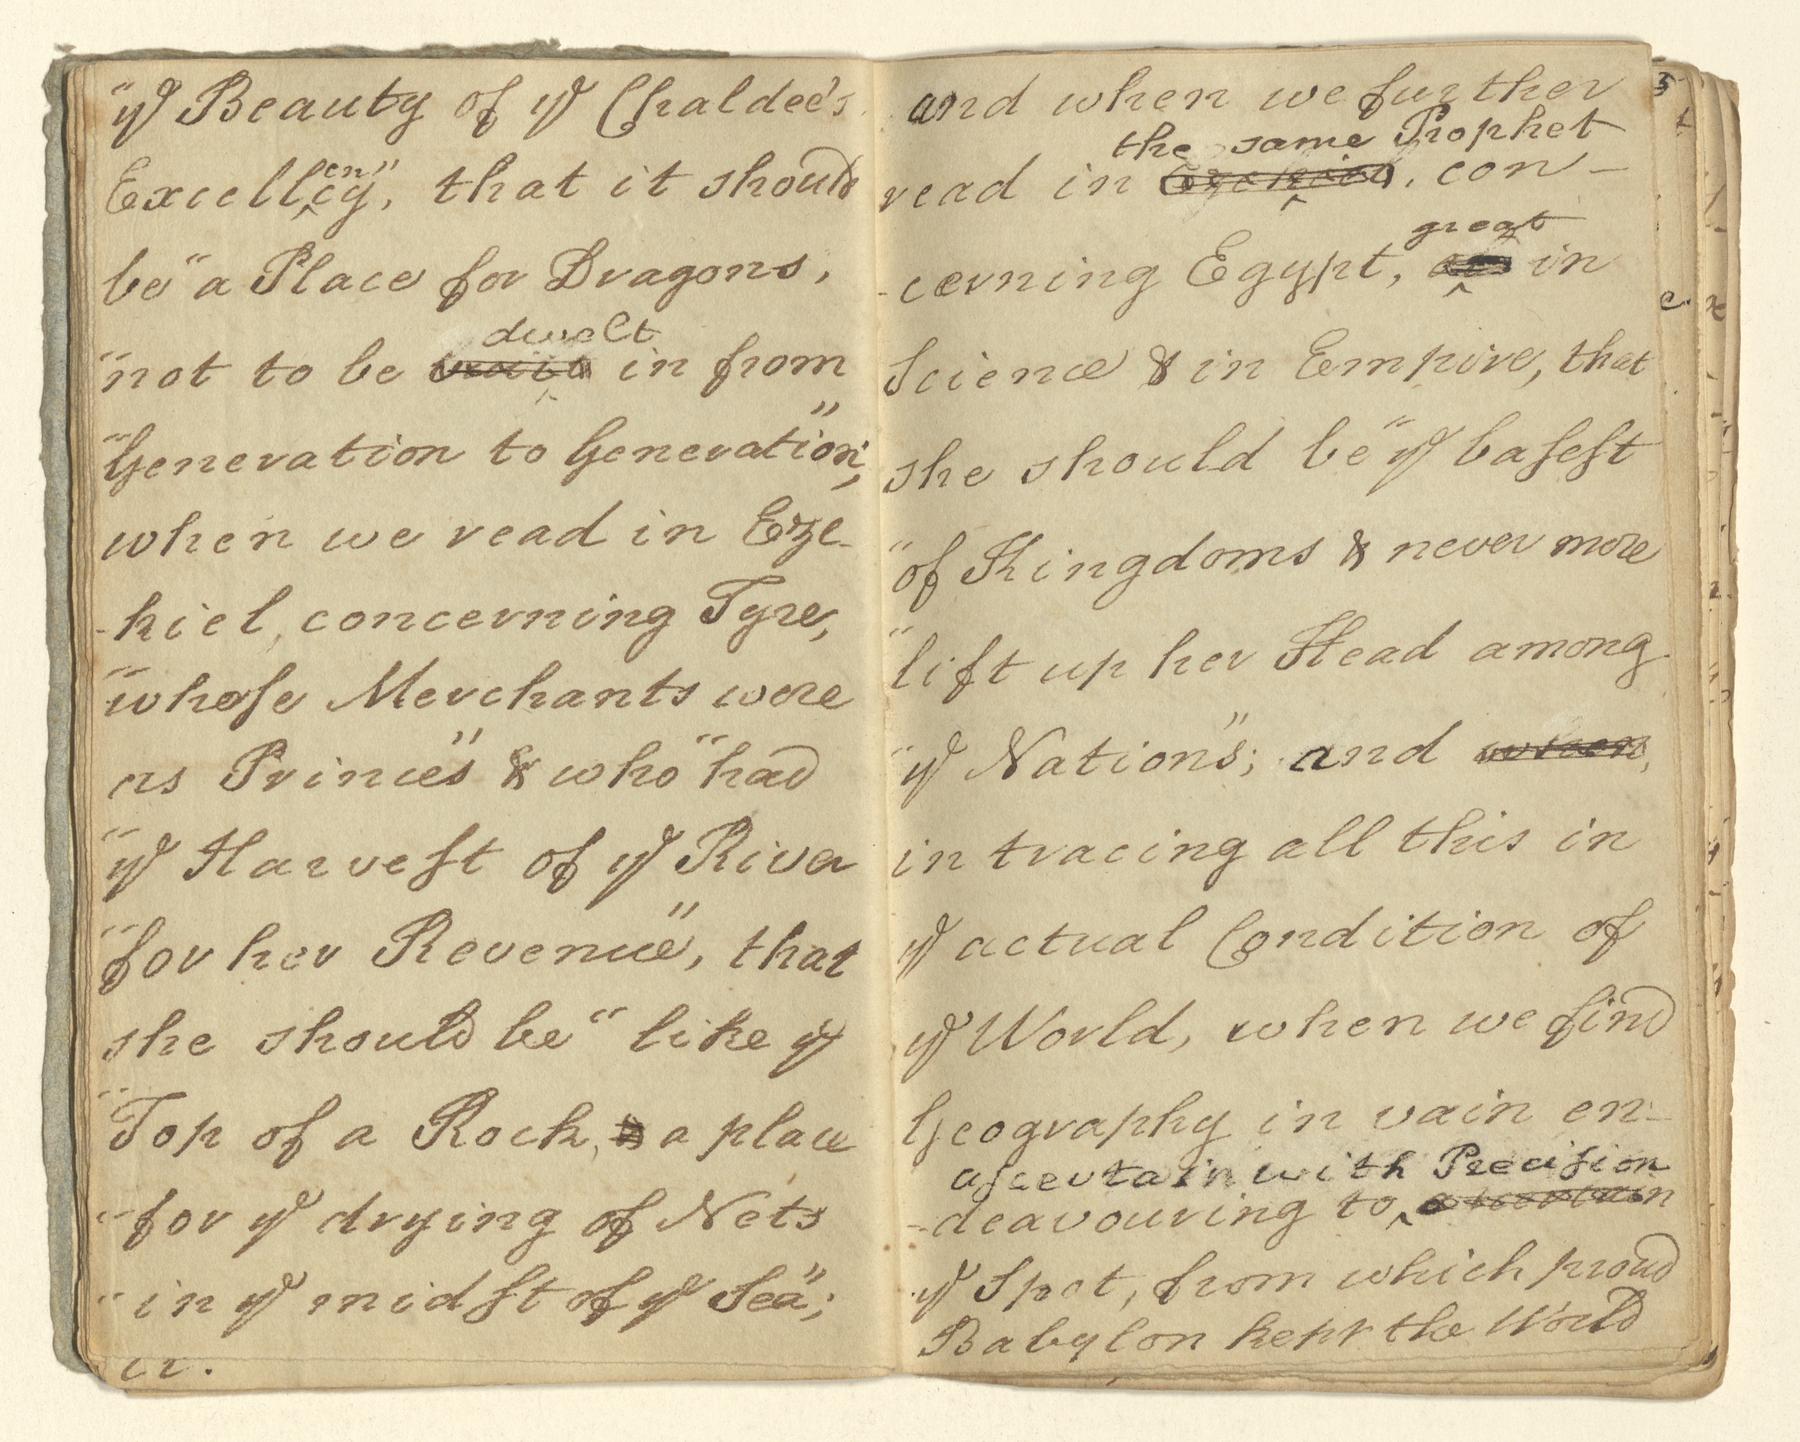 "yͤ Beauty of yͤ Chaldee's
en
Excellcy", that it should
be "a Place for Dragons,
dwelt
"not to be in from
"Generation to Generation";
when we read in Eze-
-kiel, concerning Tyre,
"whose Merchants were
as Princes" & who "had
"yͤ Harvest of yͤ River
"for her Revenue", that
she should be "like yͤ
"Top of a Rock, & a place
"for yͤ drying of Nets
"in yͤ midst of yͤ Sea";
and when we further
the same Prophet
read in Ezekiel, con-
great
-cerning Egypt, in
Science & in Empire, that
she should be "yͤ basest
"of Kingdoms & never more
"lift up her Head among
"yͤ Nations"; and when,
in tracing all this in
yͤ actual Condition of
yͤ World, when we find
Geography in vain en-
ascertain with Precision
-deavouring to ascertain
yͤ Spot, from which proud
Babylon kept the World